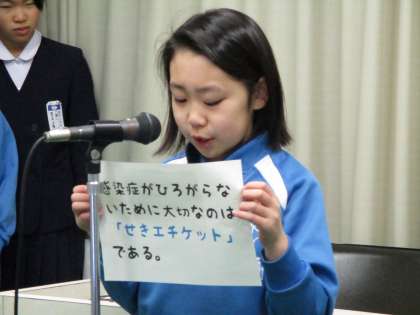 感染症がひろがらな
いために大切なのは
「せきエチケット」
である。